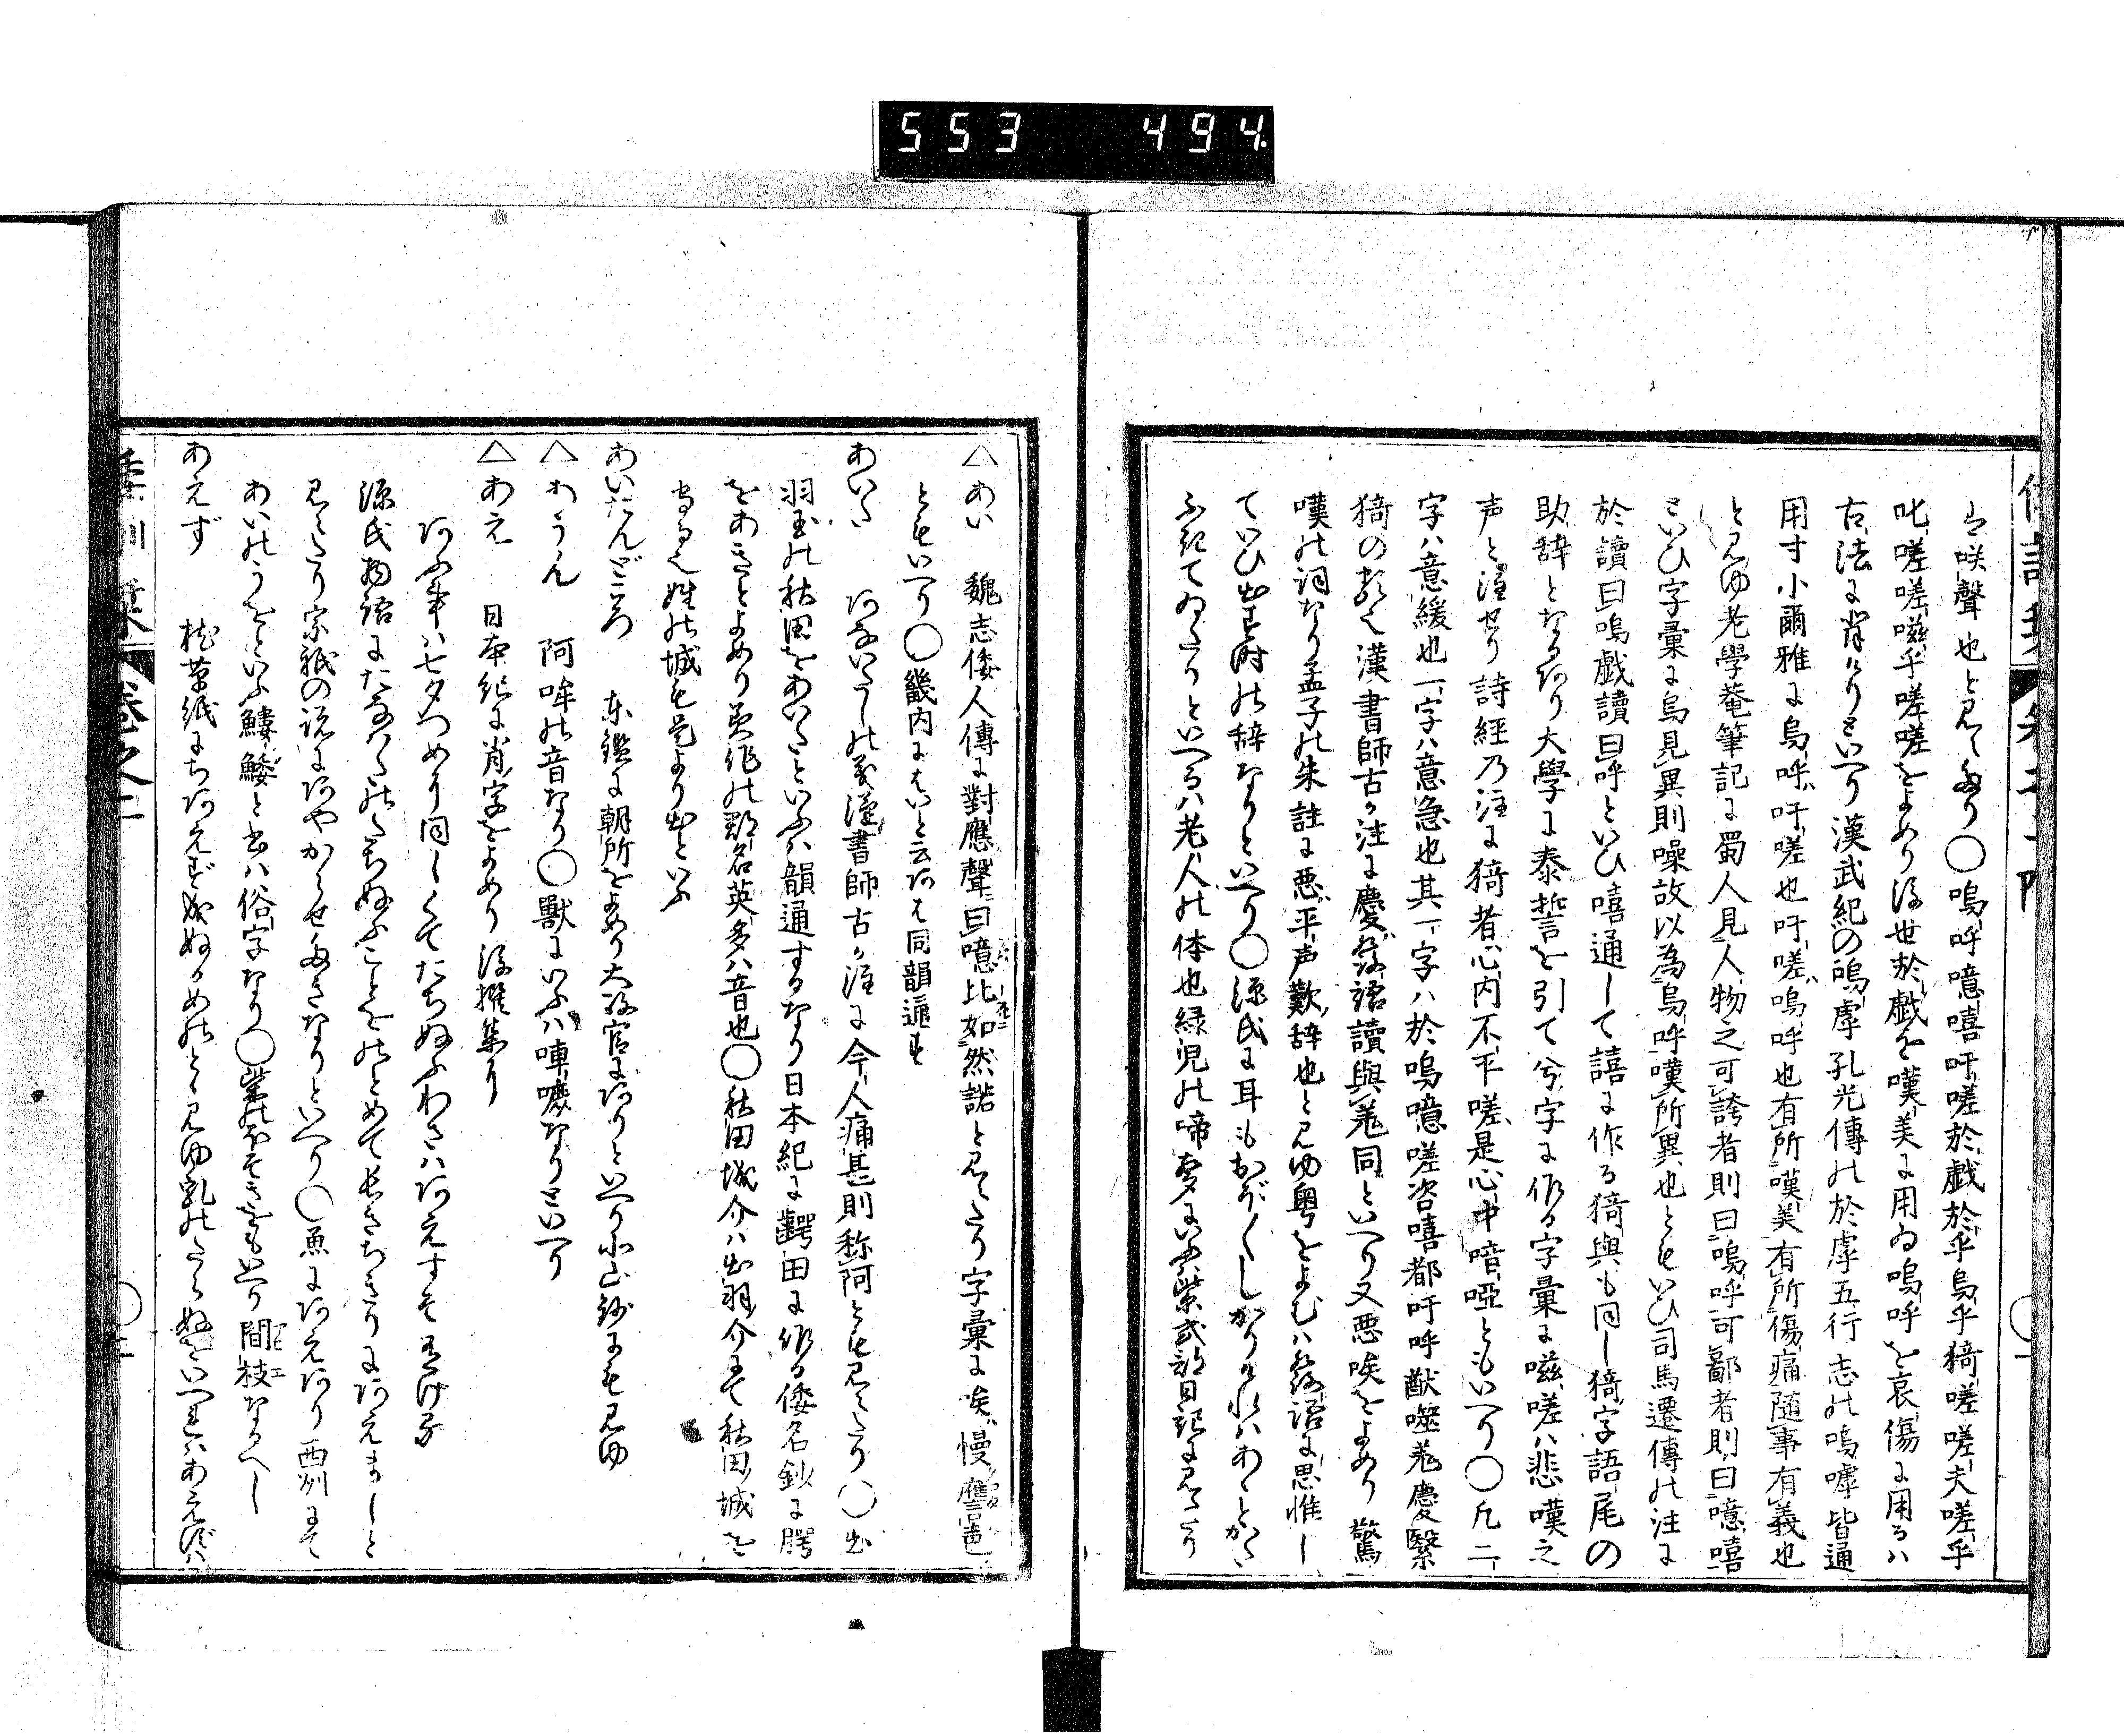 553 494.
は咲聲也と見えたり〇嗚呼噫嘻吁嗟於戯於乎烏乎猗嗟嗟夫嗟乎
叱嗟嗟嗞乎嗟嗟をよめり後世於戯を嘆美に用ゐ嗚呼を哀傷に用るハ
古法に背けりといへり漢武紀の嗚虖孔光傳の於虖五行志の嗚嘑皆通
用す小爾雅に烏呼吁嗟也吁嗟嗚呼也有所嘆美有所傷痛随事有義也
と見ゆ老學菴筆記に蜀人見人物之可誇者則曰嗚呼可鄙者則曰噫嘻
といひ字彙に烏見異則噪故以為烏呼嘆所異也ともいひ司馬遷傳の注に
於讀曰嗚戯讀曰呼といひ嘻通して譆に作る猗與も同し猗字語尾の
助辞となるあり大學に泰誓を引て兮字に作る字彙に嗞嗟ハ悲嘆之
声と注せり詩経乃注に猗者心内不平嗟是心中喑啞ともいへり〇凡二
字ハ意緩也一字ハ意急也其一字ハ於嗚噫嗟咨嘻都吁呼猷噬羌慶繄
猗の類也漢書師古か注に慶発語讀與羌同といへり又悪唉をよめり驚
嘆の詞なり孟子の朱註に悪平声歎辞也と見ゆ粤をよむハ発語に思惟し
ていひ出す時の辞なりといへり〇源氏に耳もおぼ〳〵しかりけれハあゝとかた
ふきてゐたりといへるハ老人の体也緑児の啼声にいふハ紫式部日記に見えたり
△あい 魏志倭人傳に對應聲曰噫比如然諾と見えたり字彙に唉慢應
ともいへり〇畿内にはいと云あは同韻通す
あいた あないたしの義漢書師古か注に今人痛甚則称阿とも見えたり〇出
羽国の秋田をあいたといふハ韻通するなり日本紀に齶田に作る倭名鈔に腭
をあきとよめり美作の郡名英多ハ音也〇秋田城介ハ出羽介にて秋田城を
守る也姓の城も是より出といふ
あいたんどころ 東鑑に朝所をよめり太政官にありといへり小山鈔にも見ゆ
△あうん 阿吽の音なり〇獣にいふハ
△あえ 日本紀に肖字をよめり後撰集に
あふ事ハ七夕つめに同しくてたちぬふわさハあえすそ有ける
源氏物語にたなはたのたちぬふことをのとめて長きちきりにあえましと
見えたり宗祇の説にあやからせたきなりといへり〇魚にあえあり西州にて
あいのうをといふ鱁鮧と書ハ俗字なり
あえず 枕草紙に